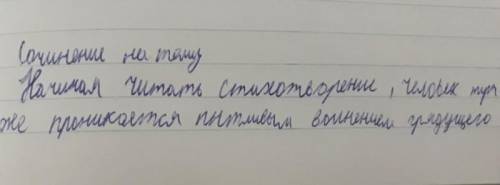 Сочинение на тему
Начиная читать стихотворение, человек тут
же проникается пытливым волнением грядущего